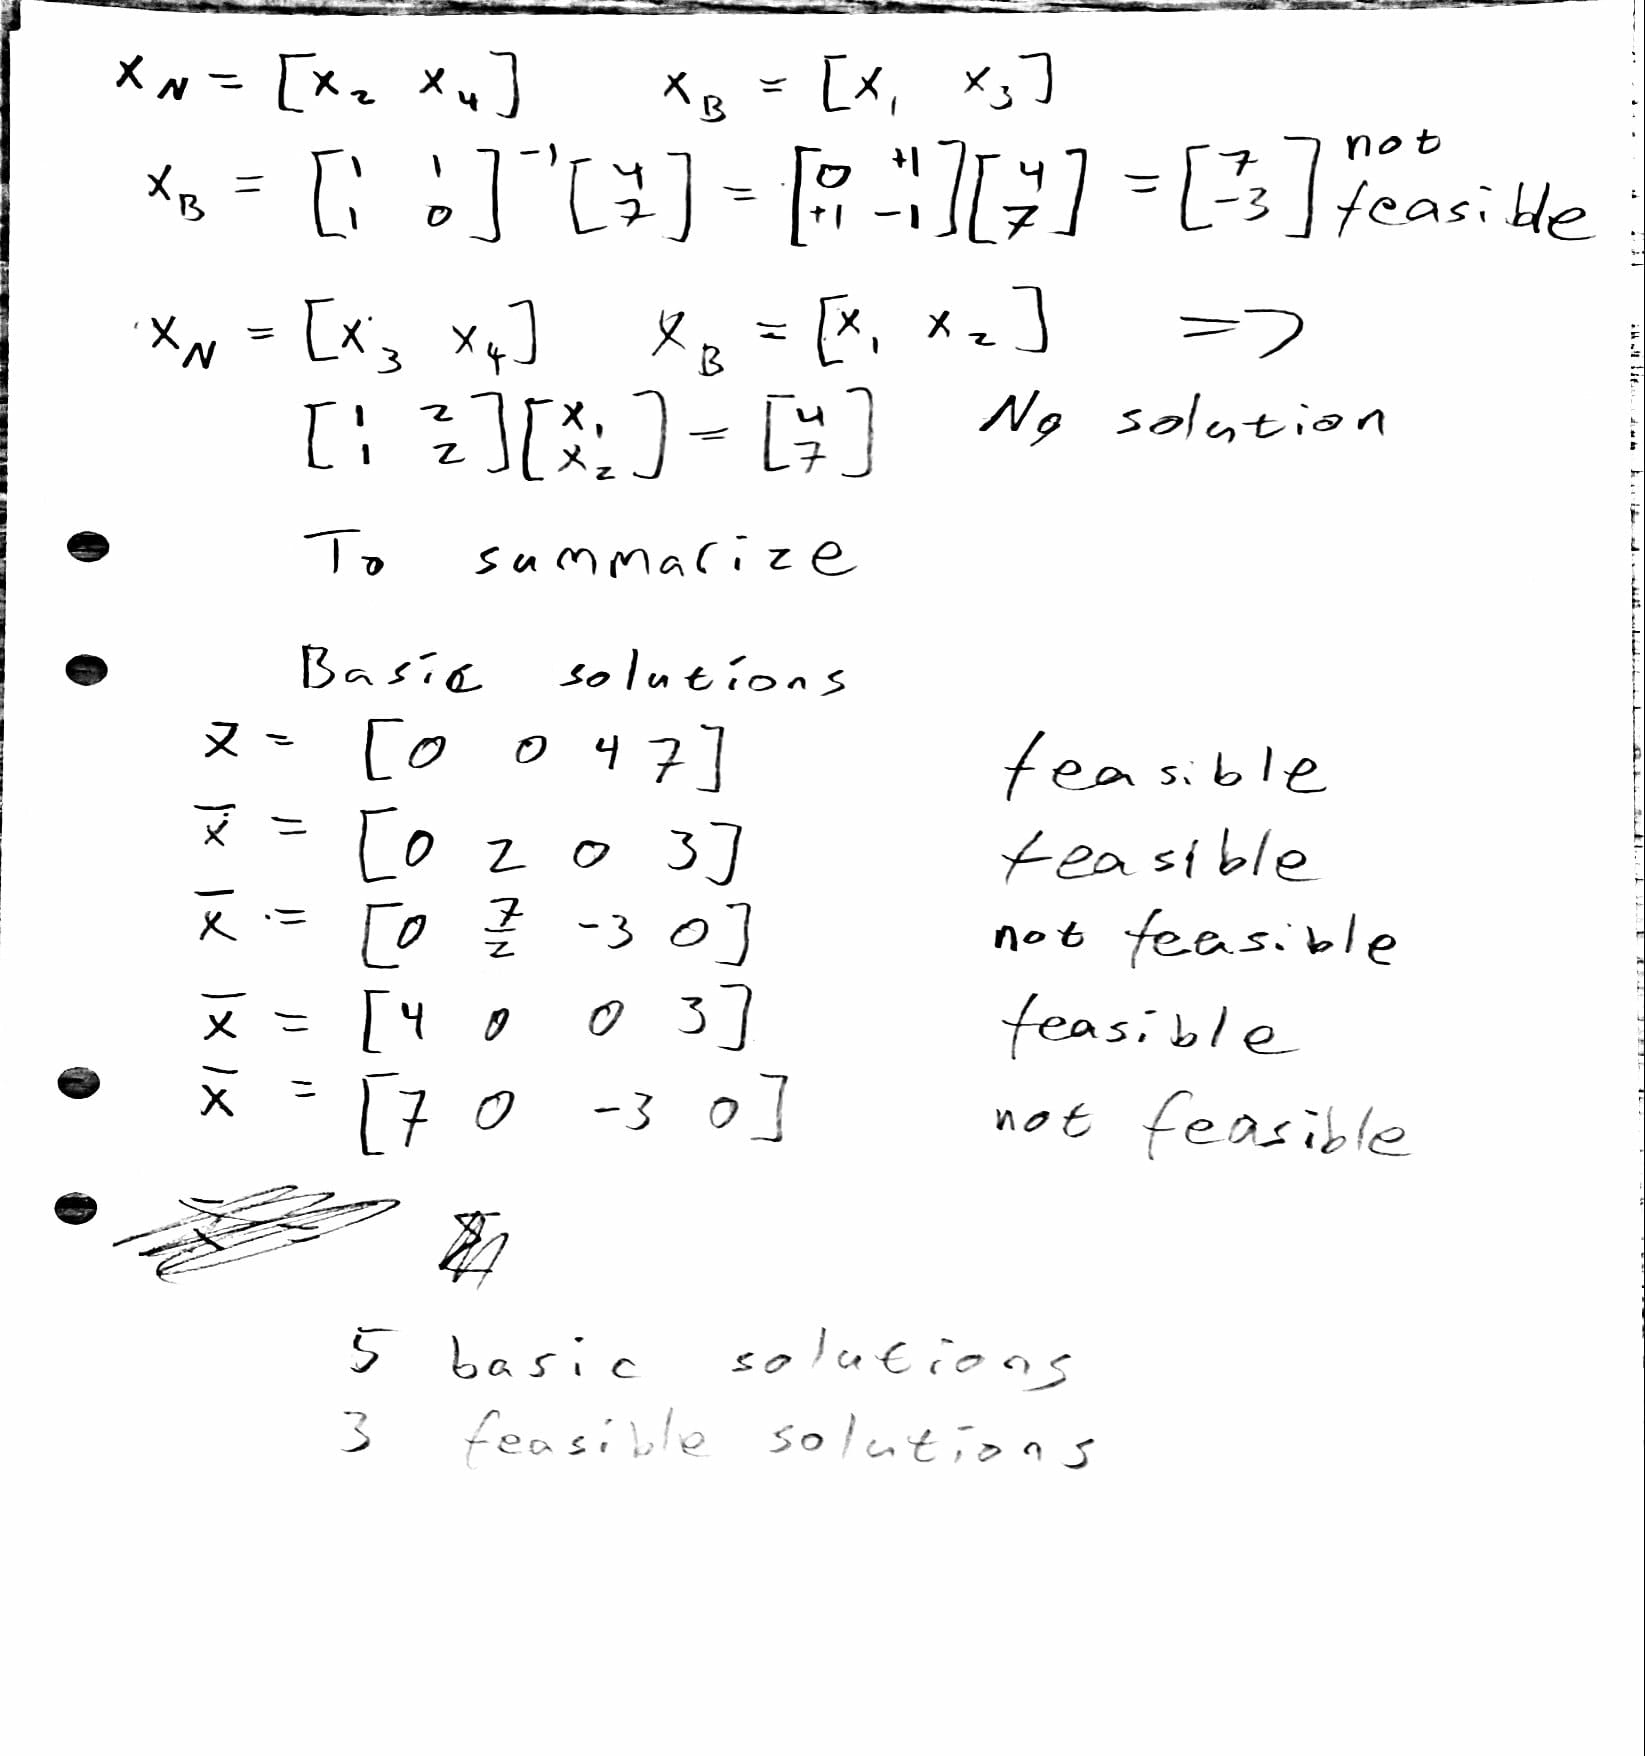 x_N = [x_2 x_4]   x_B = [x_1 x_3]
x_B = [1 1; 1 0]^-1 [4; 7] = [0 +1; +1 -1] [4; 7] = [7; -3] not feasible
x_N = [x_3 x_4]   x_B = [x_1 x_2] =>
[1 2; 1 2] [x_1; x_2] = [4; 7]   No solution
To summarize
Basic solutions
x̄ = [0 0 4 7]   feasible
x̄ = [0 2 0 3]   feasible
x̄ = [0 7/2 -3 0]   not feasible
x̄ = [4 0 0 3]   feasible
x̄ = [7 0 -3 0]   not feasible
5 basic solutions
3 feasible solutions